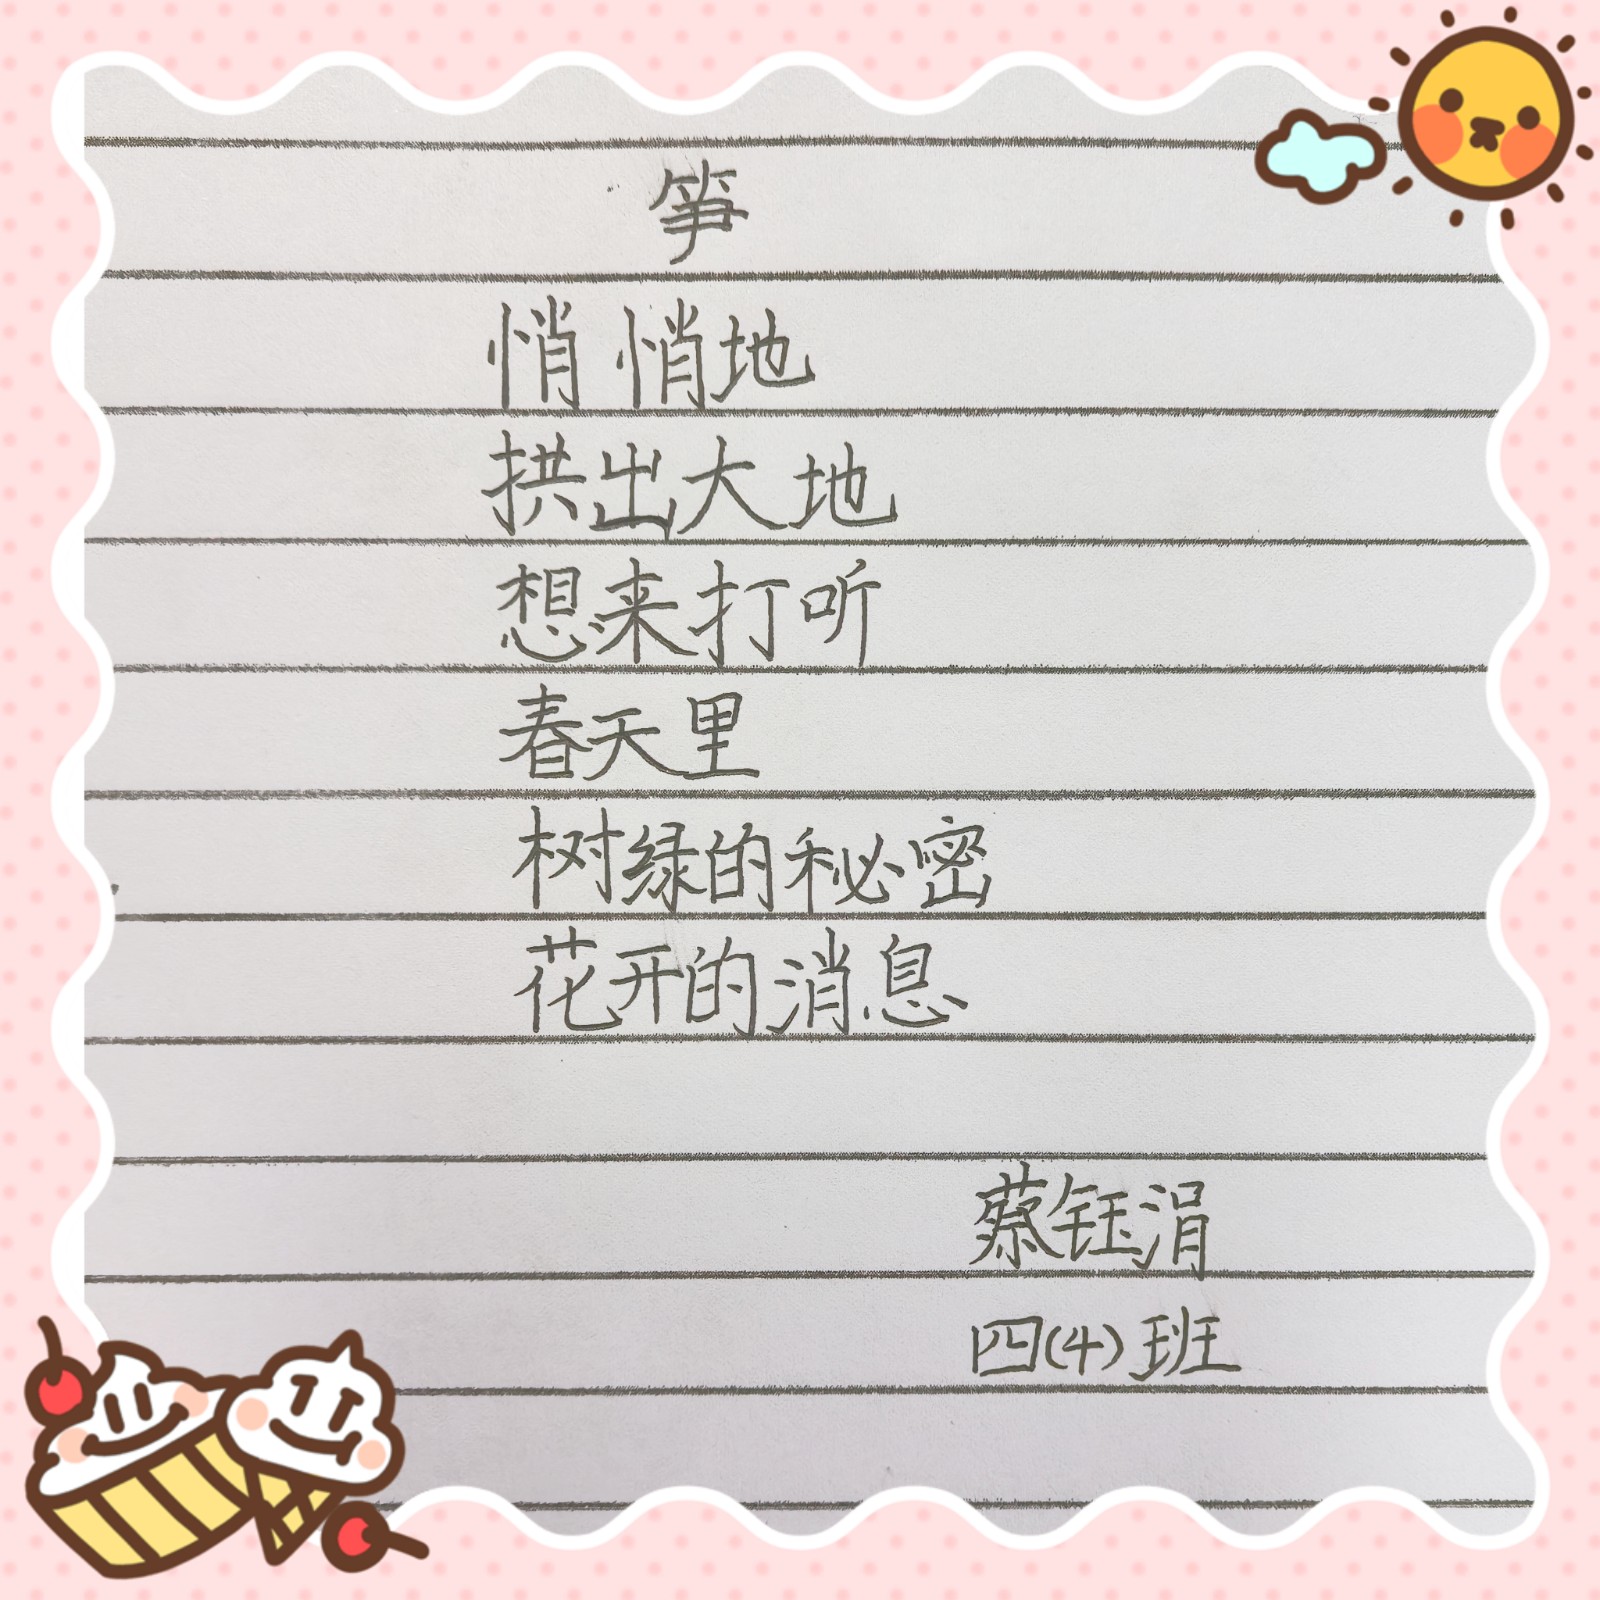 笋
悄悄地
拱出大地
想来打听
春天里
树绿的秘密
花开的消息
蔡钰涓
四(4)班